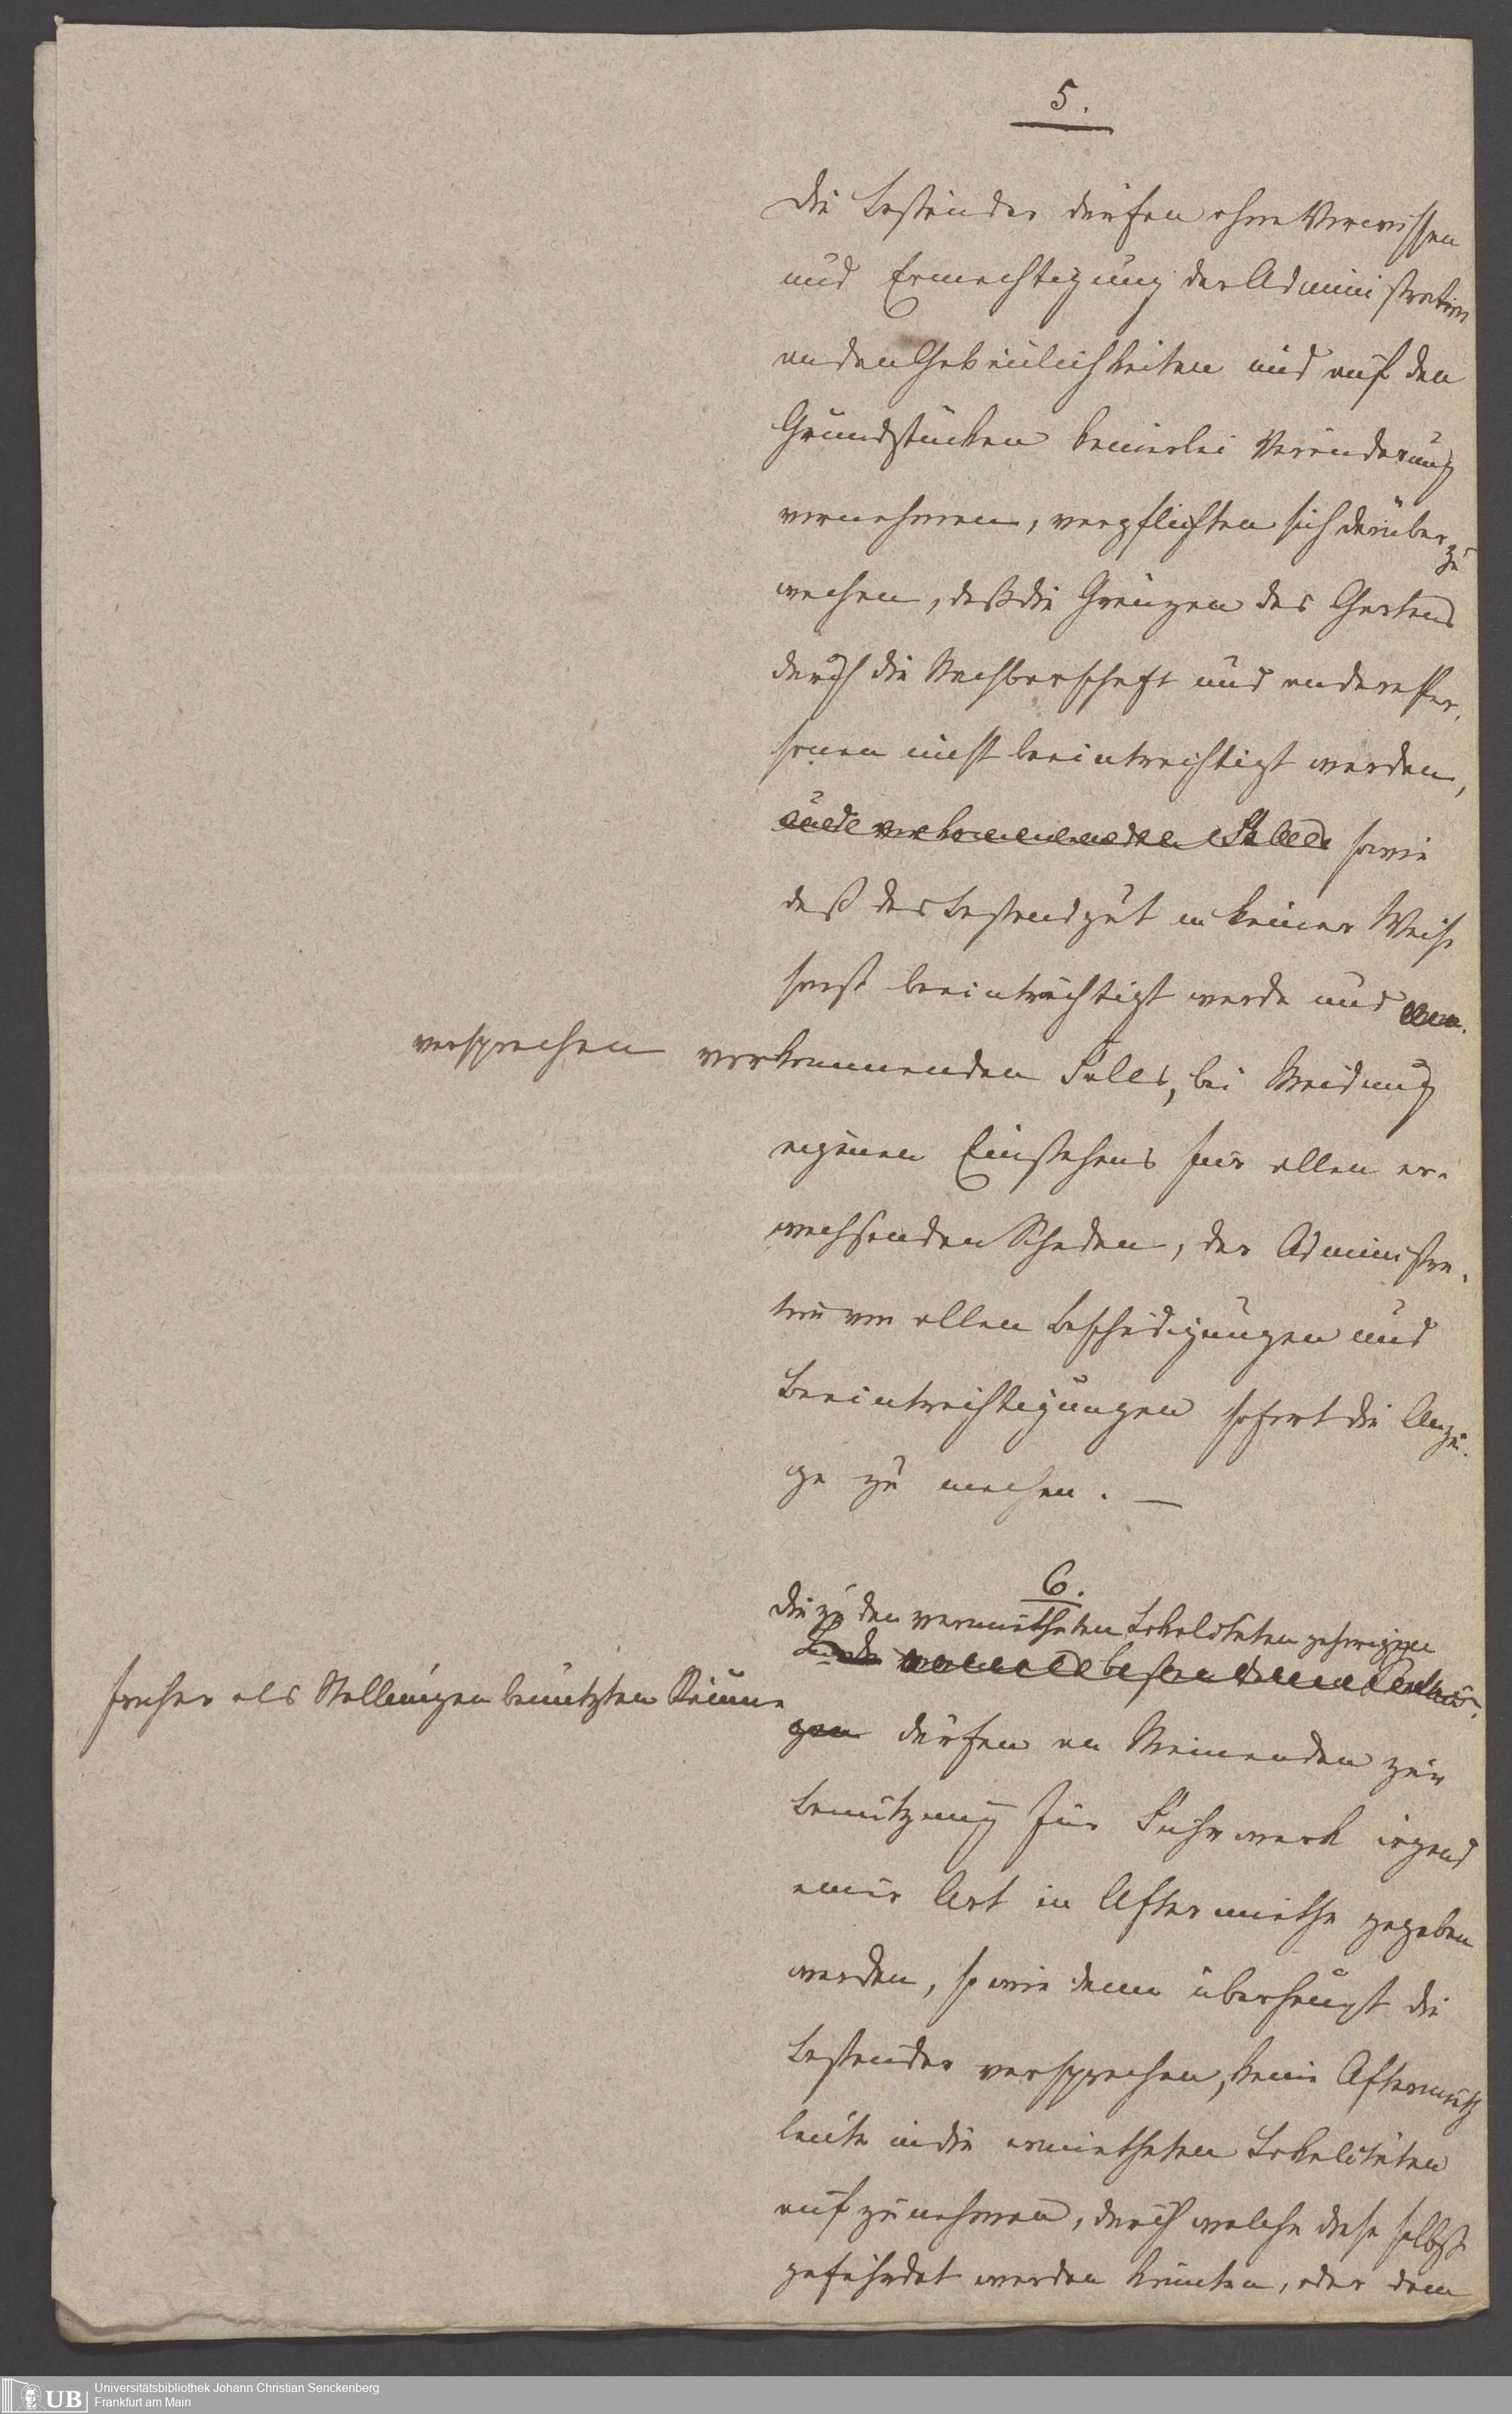 5.
Die Beständer dürfen ohne Vorwissen
und Ermächtigung der Administration
an den Gebäulichkeiten und auf den
Grundstücken keinerlei Veränderung
vornehmen, verpflichten sich darüber zu
wachen, daß die Gränzen des Gartens
durch die Nachbarschaft und andere Per-
sonen nicht beeinträchtigt werden,
und vorkommenden Falls sowie
daß das Bestandgut in keiner Weise
sonst beeinträchtigt werde und
versprechen vorkommenden Falls, bei Meidung
eigenen Einstehens für allen er-
wachsenden Schaden, der Administra-
tion von allen Beschädigungen und
Beeinträchtigungen sofort die Anzei-
ge zu machen. —
6.
Die zu den vermietheten Lokalitäten gehörigen
früher als Stallungen benützten Räume
gen dürfen an Niemanden zur
Benutzung für Fuhrwerk irgend
einer Art in Aftermiethe gegeben
werden, so wie denn überhaupt die
Beständer versprechen, keine Aftermieth
leute in die ermietheten Lokalitäten
aufzunehmen, durch welche diese selbst
gefährdet werden könnten, oder dem
UB
Universitätsbibliothek Johann Christian Senckenberg
Frankfurt am Main